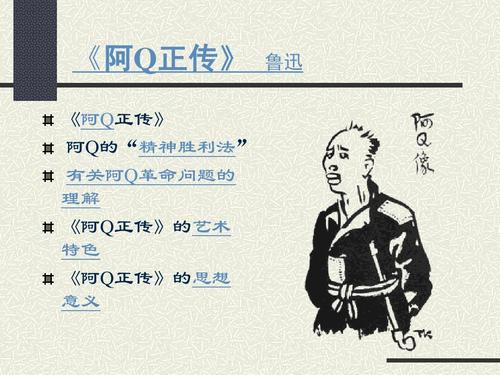 《阿Q正传》 鲁迅
《阿Q正传》
阿Q的“精神胜利法”
有关阿Q革命问题的
理解
《阿Q正传》的艺术
特色
《阿Q正传》的思想
意义
阿Q像